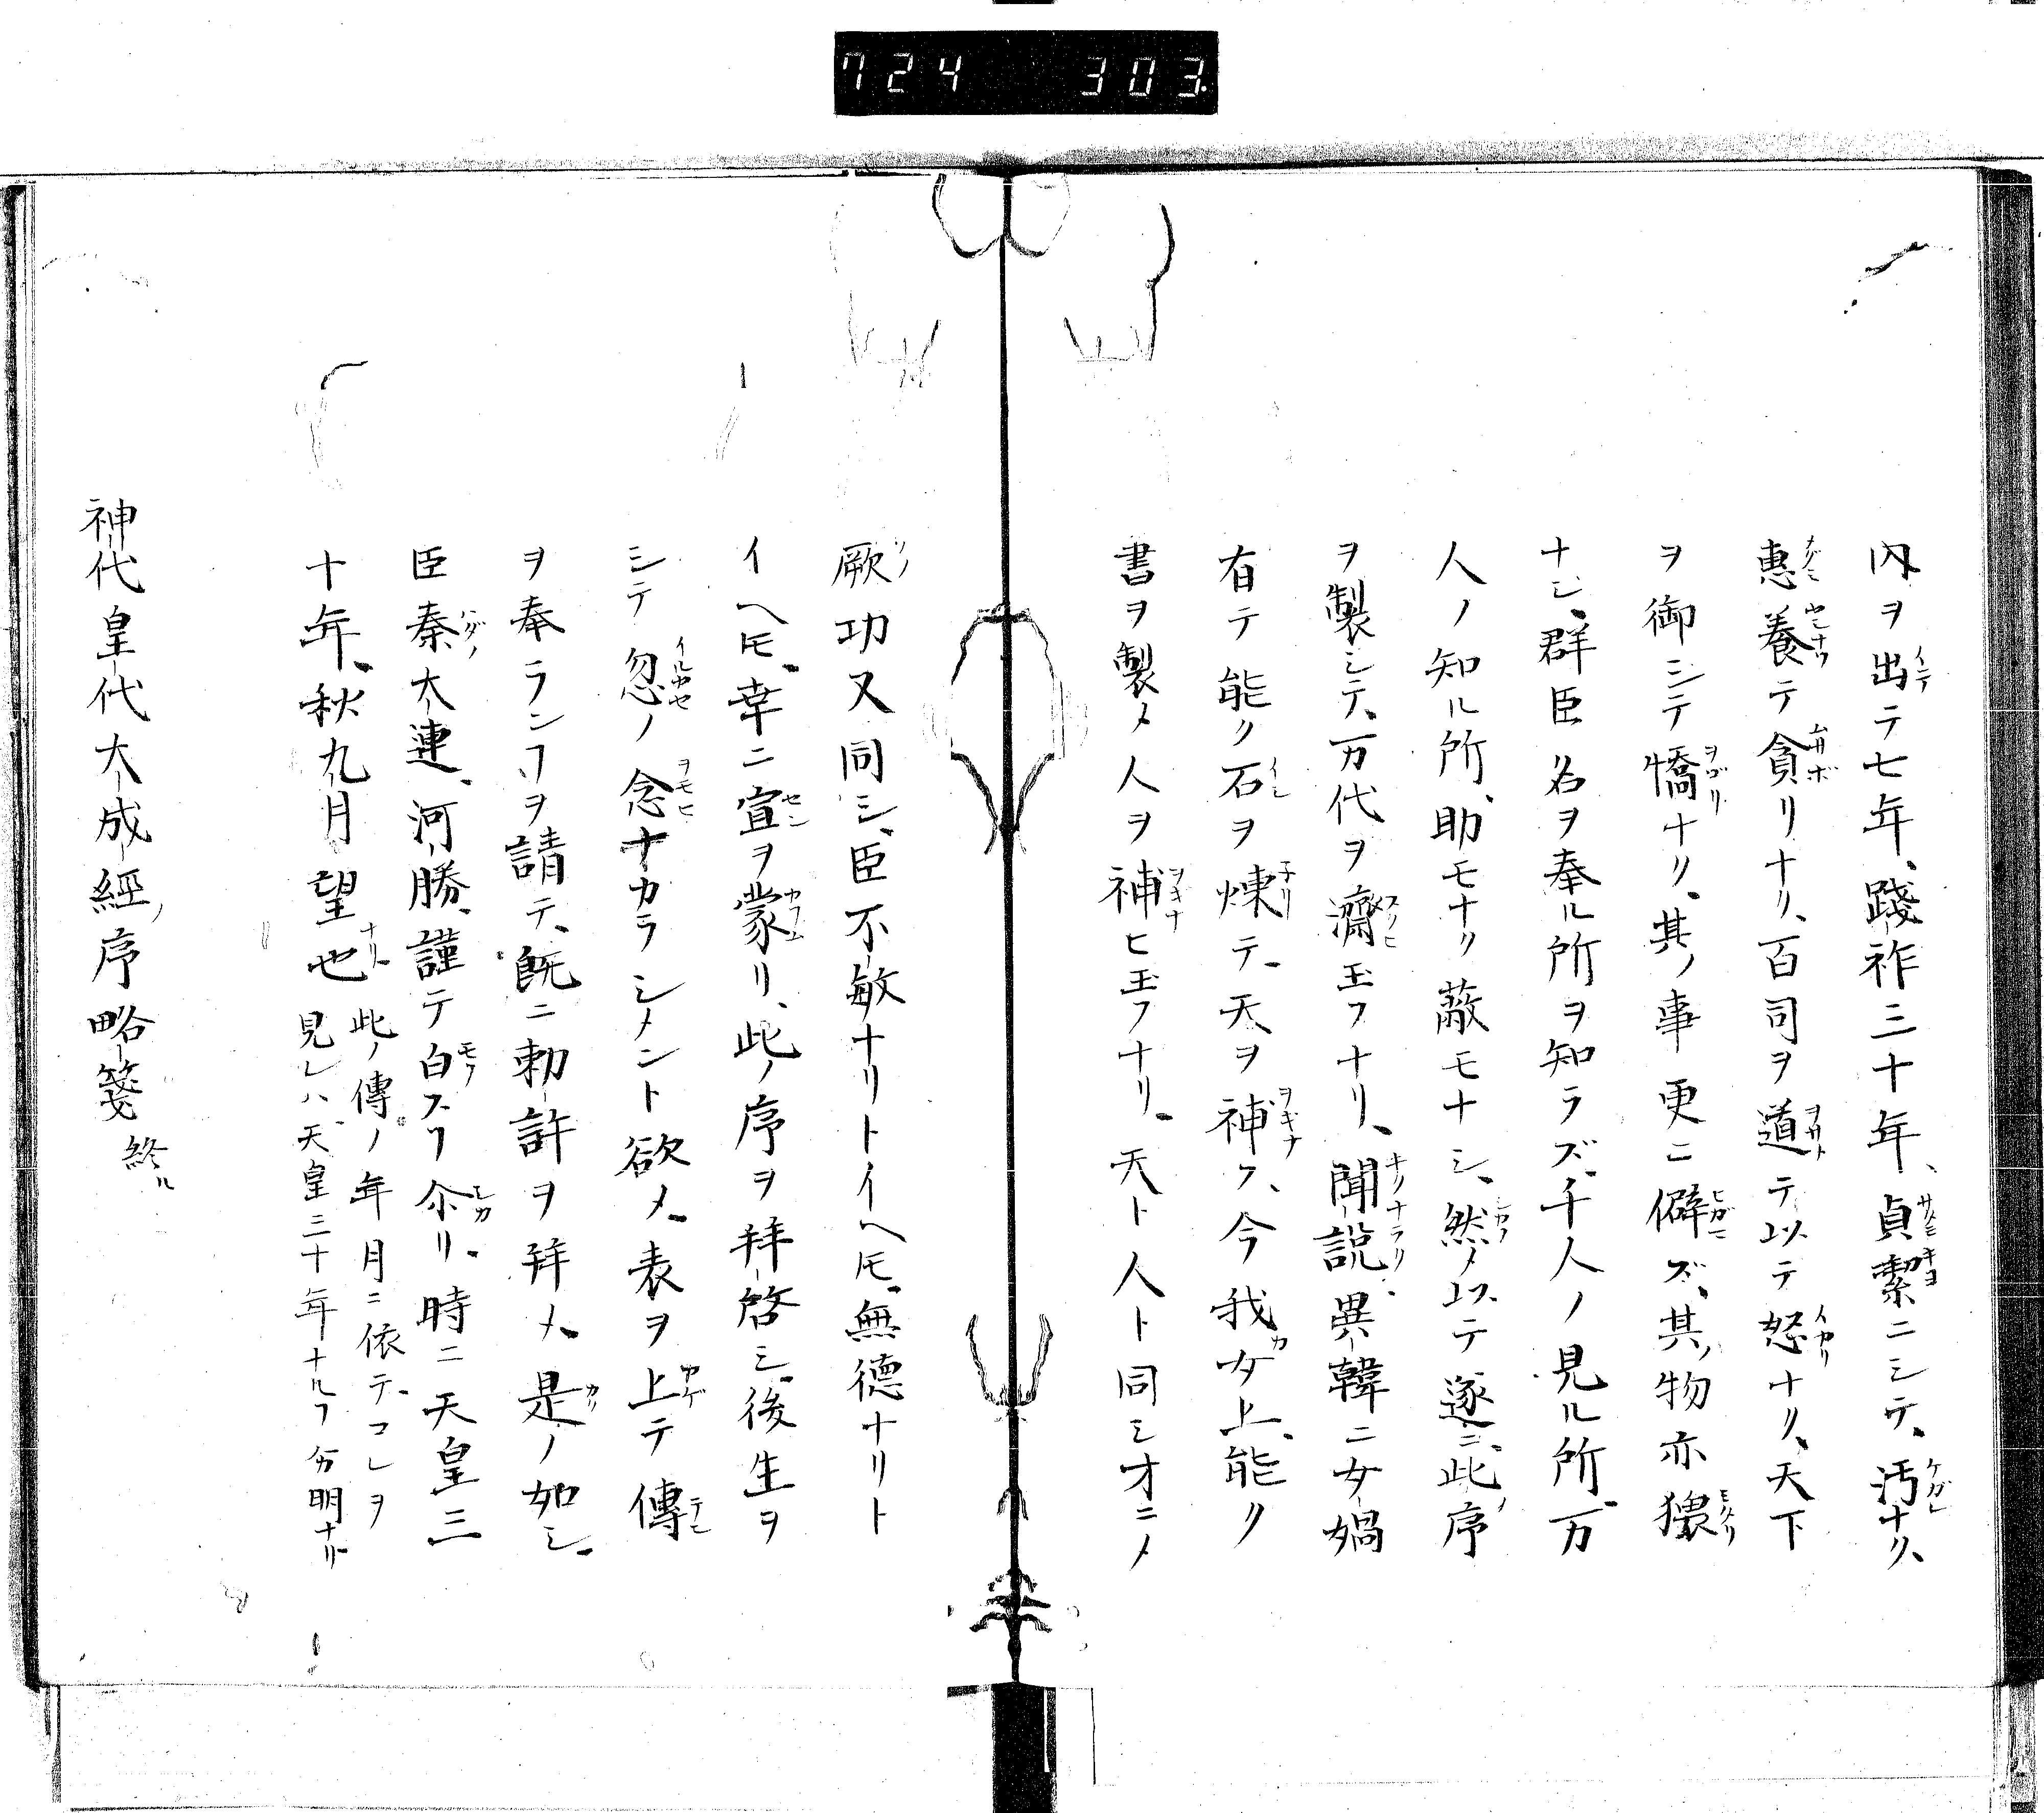 724 303
内ヲ出テ七年、踐祚三十年、貞潔ニシテ、汚ナク、
惠養テ貪リナリ、百司ヲ道テ以テ怒ナク、天下
ヲ御シテ憍ナク、其ノ事更ニ僻ズ、其ノ物亦獧
ナシ、群臣名ヲ奉ル所ヲ知ラズ、千人ノ見ル所、万
人ノ知ル所、助モナク敵モナシ、然メ以テ遂ニ、此ノ序
ヲ製シテ、万代ヲ濟玉フナリ、聞説、異韓ニ女媧
有テ能ク石ヲ煉テ、天ヲ補フ、今我カ女上、能ク
書ヲ製メ人ヲ補ヒ玉フナリ、天ト人ト同シ才ニメ
厥功又同シ、臣不敏ナリトイヘ𪜈、無德ナリト
イヘ𪜈、幸ニ宣ヲ蒙リ、此ノ序ヲ拜啓シ、後生ヲ
シテ忽ノ念ナカラシメント欲メ、表ヲ上テ傳
ヲ奉ランヿヲ請テ、既ニ勅許ヲ拜メ、是ノ如シ、
臣秦大連、河勝、謹テ白スヿ尒リ、時ニ天皇三
十年、秋九月望也
此ノ傳ノ年月ニ依テ、コレヲ
見レハ、天皇三十年ナルヿ分明ナリ
神代皇代大成經ノ序略箋 終ル